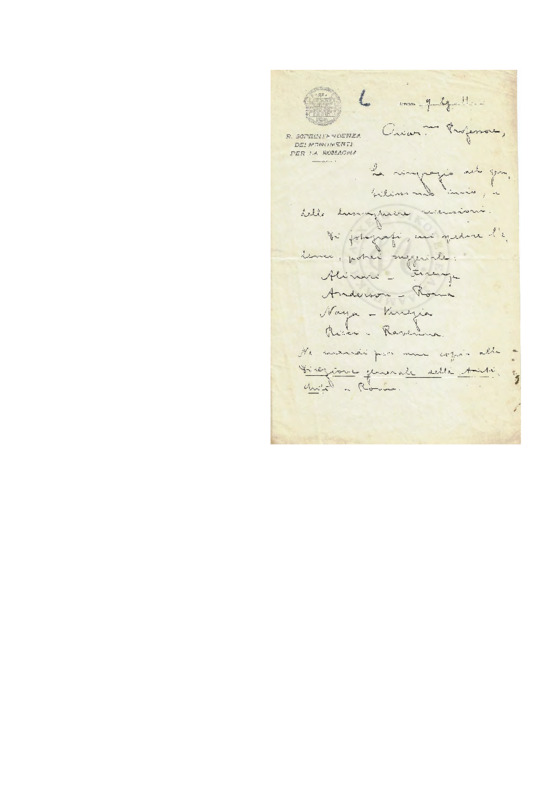 R. SOPRINTENDENZA
DEI MONUMENTI
PER LA ROMAGNA
Professore,
La ringrazio del gen,
tilissimo invio, e
delle lusinghiere recensioni.
Di fotografi cui spedire l'e,
lenco, potrei suggerirle:
Alinari - Firenze
Anderson - Roma
Naya - Venezia
Ricci - Ravenna
Ne mandi pure una copia alla
Direzione generale delle Antichi
chità - Roma.